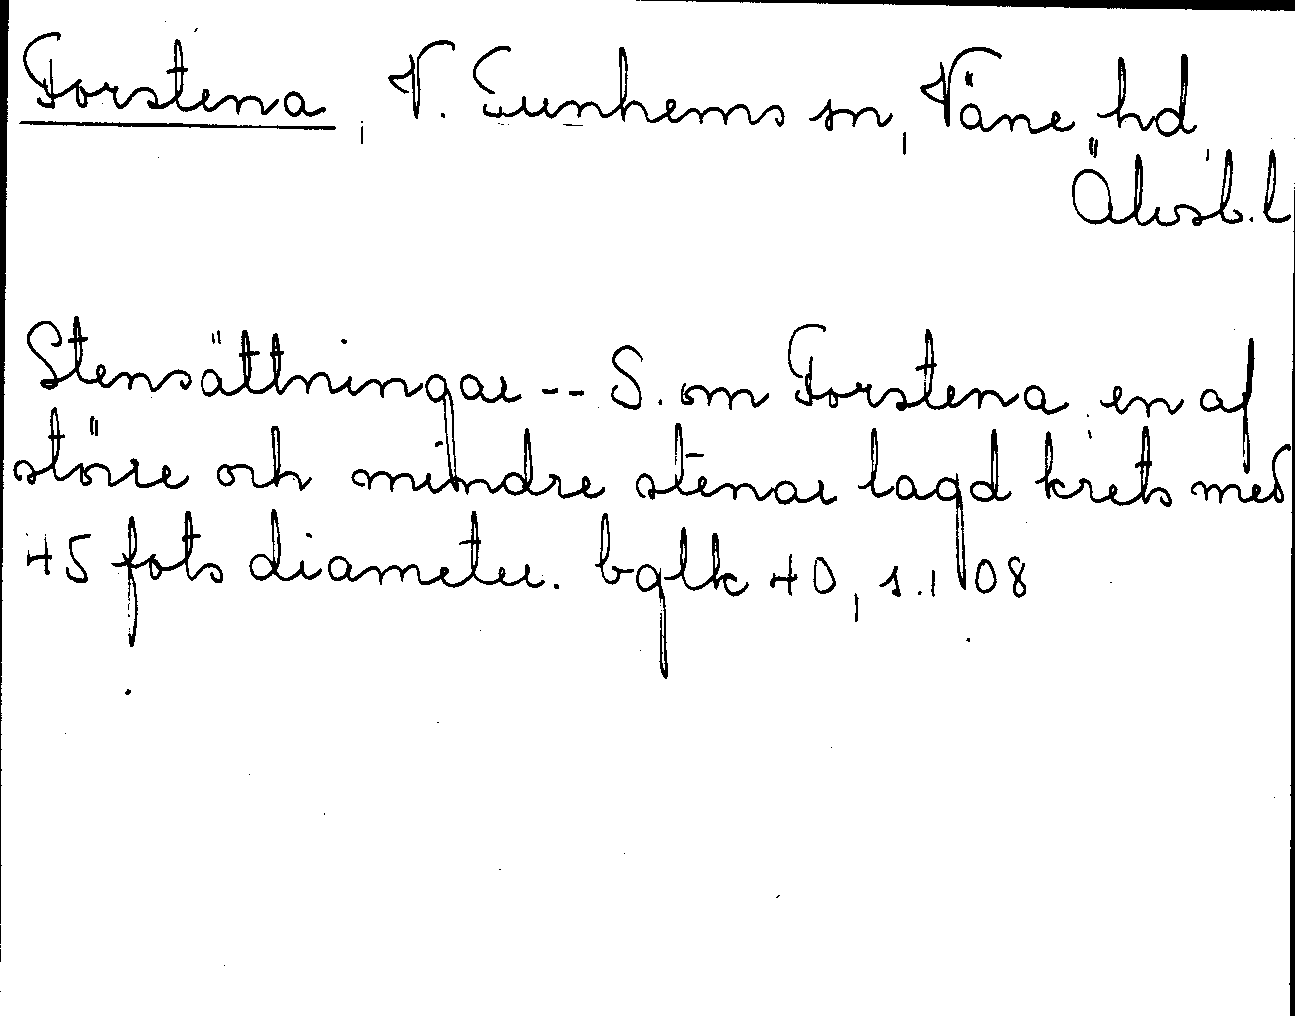 Forstena, V. Tunhems sn, Väne hd,
Älvsb. l
Stensättningar -- S. om Forstena en af
större och mindre stenar lagd krets med
45 fots diameter. bglk 40, s. 108